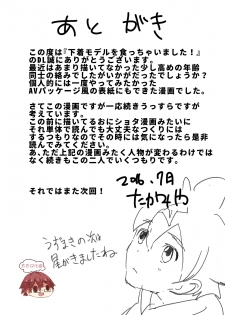 あとがき
この度は『下着モデルを食っちゃいました！』
のDL誠にありがとうございます。
最近はあまり描いてなかった少し高めの年齢
同士の絡みでしたがいかがだったでしょうか？
個人的には一度やってみたかった
AVパッケージ風の表紙にもできた漫画でした。
さてこの漫画ですが一応続きうっすらですが
考えています。
この前に描いてるおにショタ漫画みたいに
それ単体で読んでも大丈夫なつくりには
するつもりなのでその時には気になったら是非
読んでみてください。
あ、ただ上記の漫画みたく人物が変わるわけでは
なく続きもこの二人でいくつもりです。
それではまた次回！
2016.7月